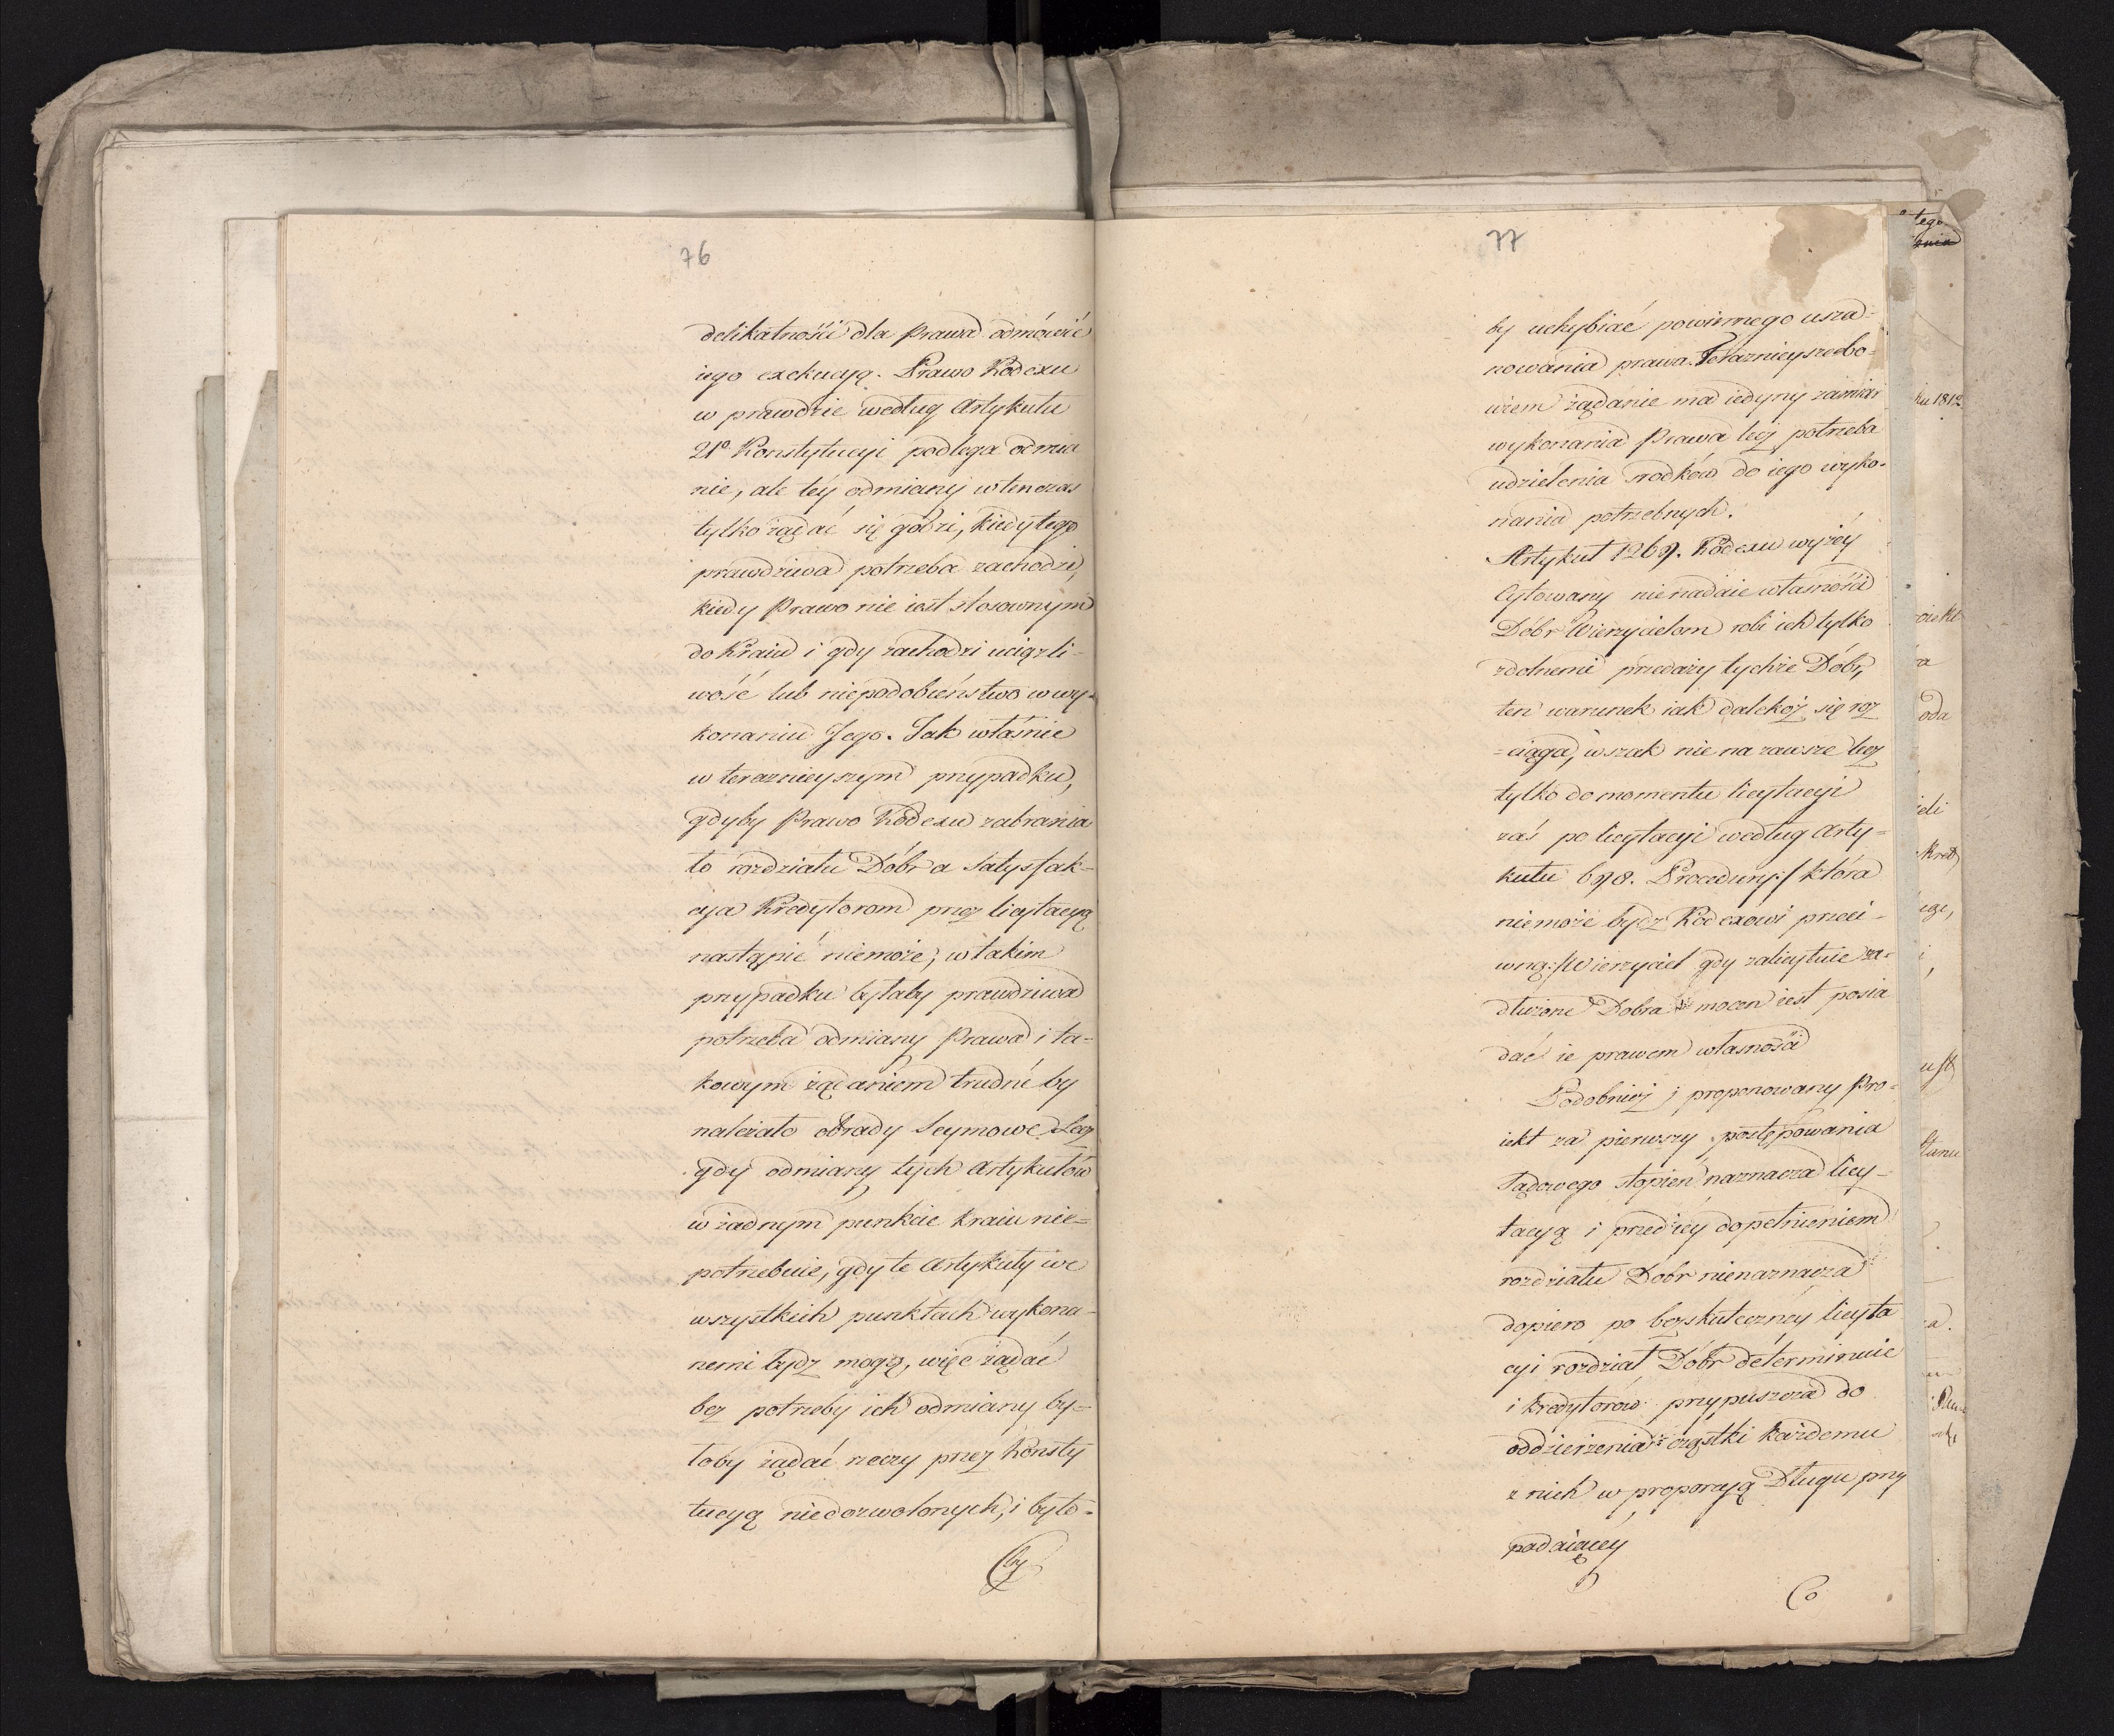 76
delikatności dla Prawa odmówić
iego exekucyą. Prawo Kodexu
w prawdzie według Artykułu
21º Konstytucyi podlega odmia
nie, ale téy odmiany wtenczas
tylko żądać się godzi, kiedy tego
prawdziwa potrzeba zachodzi,
kiedy Prawo nie iest stosownym
do Kraiu i gdy zachodzi uciązli-
wość lub niepodobieństwo w wy-
konaniu Jego. Jak właśnie
w terazniejszym przypadku,
gdyby Prawo Kodexu zabrania
ło rozdziału Dóbr a Satysfak-
cya Kredytorom przez licytacyą
nastąpić niemoże, w takim
przypadku byłaby prawdziwa
potrzeba odmiany Prawa i ta-
kowym żądaniem trudnć by
należało obrady Seymowe. Lecz
gdy odmiany tych Artykułów
w żadnym punkcie Kraiu nie=
potrzebuie, gdy te Artykuły we
wszystkich punktach wykona-
nemi bydz mogą, więc żądać
bez potrzeby ich odmiany by=
łoby żądać rzeczy przez Konsty
tucyą niedozwolonych, i było=
by
77
by uchybiać powinnego usza=
nowania prawa. Terazniejsze bo=
wiem żądanie ma iedyny zamiar
wykonania Prawa lecz potrzeba
udzielenia srodków do iego wyko-
nania potrzebnych.
Artykuł 1269. Kodexu wyżéy
Cytowany nienadaie własności
Dóbr Wierzycielom robi ich tylko
zdolnemi przedaży tychże Dóbr,
ten warunek iak dalekoż się roz
=ciąga, wszak nie na zawsze lecz
tylko do momentu licytacyi
zaś po licytacyi według Arty=
kułu 698. Procedury :/ która
niemoże bydz Kodexowi przeci-
wną :/ Wierzyciel gdy zalicytuie za=
dłużone Dobra mocen iest posia
dać ie prawem własności
Podobnież i proponowany Pro=
iekt za pierwszy postępowania
Sądowego stopień naznacza licy-
tacyą i przed iéy dopełnieniem
rozdziału Dóbr nienaznacza
dopiero po bezskuteczney licyta
cyi rozdział Dóbr determinuie
i kredytorów przypuszcza do
oddzierżenia cząstki każdemu
z nich w proporcyą Długu przy
padaiącéy
Co
tego
ku 1812